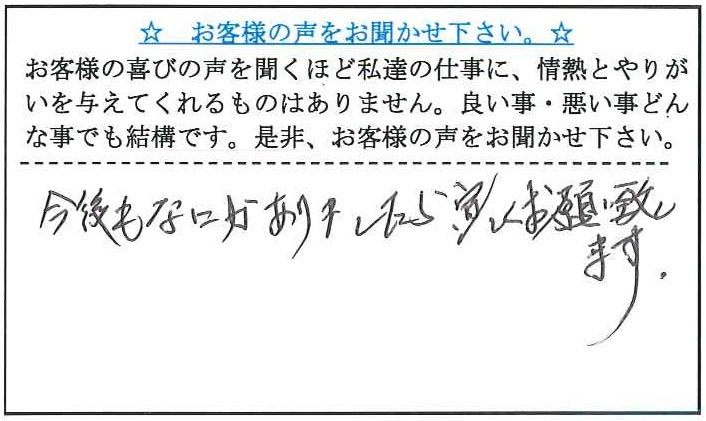 ☆ お客様の声をお聞かせ下さい。☆
お客様の喜びの声を聞くほど私達の仕事に、情熱とやりが
いを与えてくれるものはありません。良い事・悪い事どん
な事でも結構です。是非、お客様の声をお聞かせ下さい。
今後もなにかありましたら宜しくお願い致し
ます.